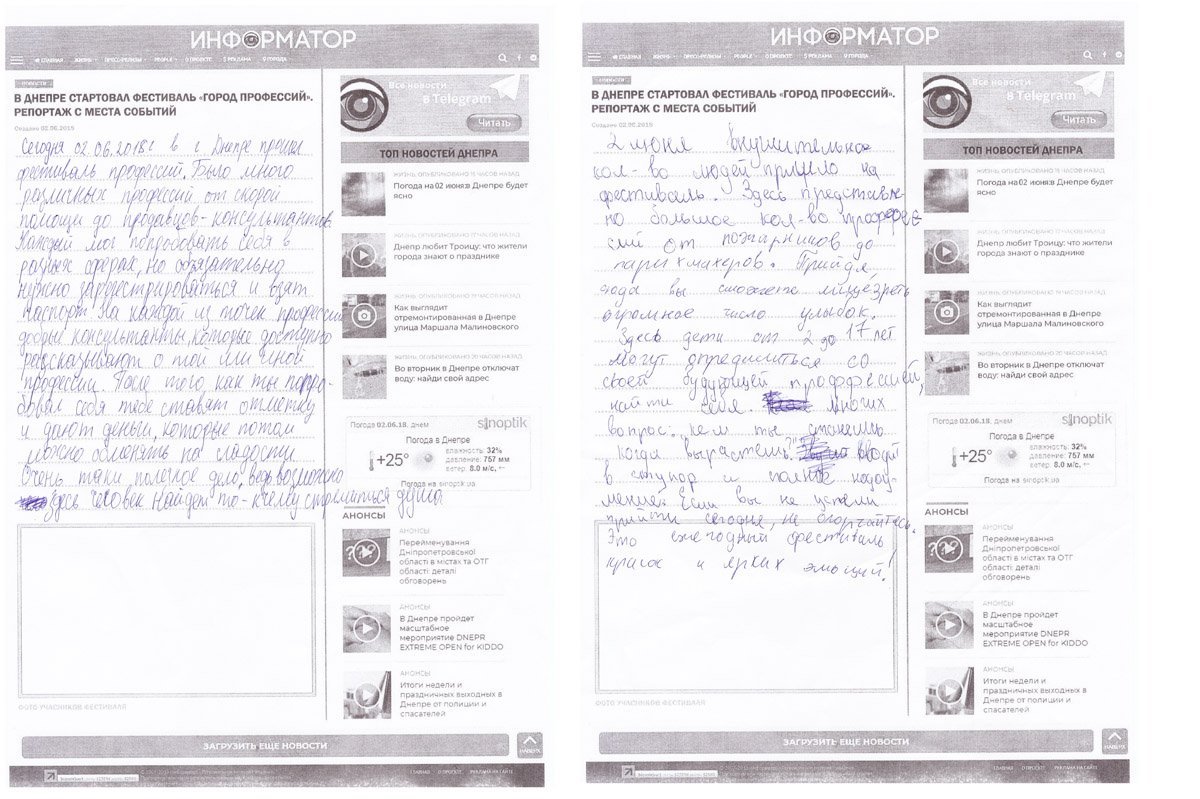 ИНФОРМАТОР
ГЛАВНАЯ ЖИЗНЬ ПРЕСС-РЕЛИЗЫ PEOPLE О ПРОЕКТЕ РЕКЛАМА О ГОРОДА
НОВОСТИ
В ДНЕПРЕ СТАРТОВАЛ ФЕСТИВАЛЬ «ГОРОД ПРОФЕССИЙ».
РЕПОРТАЖ С МЕСТА СОБЫТИЙ
Создано 02.06.2018
Сегодня 02.06.2018г в г. Днепре прошел
фестиваль профессий. Было много
различных профессий от скорой
помощи до продавцов-консультантов.
Каждый мог попробовать себя в
разных сферах, но обязательно
нужно зарегистрироваться и взять
паспорт. На каждой из точек профессий
добрые консультанты, которые доступно
рассказывают о той или иной
профессии. После того как ты попро-
бовал себя тебе ставят отметку
и дают деньги, которые потом
можно обменять на сладости
Очень таки полезное дело, ведь возможно
здесь человек найдет то-к чему стремиться душа.
ФОТО УЧАСНИКОВ ФЕСТИВАЛЯ
Все новости
в Telegram
Читать
ТОП НОВОСТЕЙ ДНЕПРА
Погода на 02 июня:в Днепре будет
ясно
Днепр любит Троицу: что жители
города знают о празднике
Как выглядит
отремонтированная в Днепре
улица Маршала Малиновского
Во вторник в Днепре отключат
воду: найди свой адрес
Погода 02.06.18, днем
sinoptik
Погода в Днепре
+25°
влажность: 32%
давление: 757 мм
ветер: 8.0 м/с,
Погода на sinoptik.ua
АНОНСЫ
АНОНСЫ
Перейменування
Дніпропетровської
області в містах та ОТГ
області: деталі
обговорень
АНОНСЫ
В Днепре пройдет
масштабное
мероприятие DNEPR
EXTREME OPEN for KIDDO
АНОНСЫ
Итоги недели и
праздничных выходных в
Днепре от полиции и
спасателей
ЗАГРУЗИТЬ ЕЩЕ НОВОСТИ
НАВЕРХ
ГЛАВНАЯ О ПРОЕКТЕ РЕКЛАМА НА САЙТЕ
ИНФОРМАТОР
ГЛАВНАЯ ЖИЗНЬ ПРЕСС-РЕЛИЗЫ PEOPLE О ПРОЕКТЕ РЕКЛАМА О ГОРОДА
НОВОСТИ
В ДНЕПРЕ СТАРТОВАЛ ФЕСТИВАЛЬ «ГОРОД ПРОФЕССИЙ».
РЕПОРТАЖ С МЕСТА СОБЫТИЙ
Создано 02.06.2018
2 июня внушительное
кол-во людей пришло на
фестиваль. Здесь представле-
но большое кол-во профес-
сий от пожарников до
парикмахеров. Прийдя,
сюда вы сможете лицезреть
огромное число улыбок.
Здесь дети от 2 до 17 лет
могут определиться со
своей будующей проффесией,
найти себя. многих
вопрос: "кем ты станешь
когда вырастешь?" вводит
в ступор и полное недоу-
мение. Если вы не успели
прийти сегодня, не огорчайтесь.
Это ежегодный фестиваль
красок и ярких эмоций!
ФОТО УЧАСНИКОВ ФЕСТИВАЛЯ
Все новости
в Telegram
Читать
ТОП НОВОСТЕЙ ДНЕПРА
Погода на 02 июня:в Днепре будет
ясно
Днепр любит Троицу: что жители
города знают о празднике
Как выглядит
отремонтированная в Днепре
улица Маршала Малиновского
Во вторник в Днепре отключат
воду: найди свой адрес
Погода 02.06.18, днем
sinoptik
Погода в Днепре
+25°
влажность: 32%
давление: 757 мм
ветер: 8.0 м/с,
Погода на sinoptik.ua
АНОНСЫ
АНОНСЫ
Перейменування
Дніпропетровської
області в містах та ОТГ
області: деталі
обговорень
АНОНСЫ
В Днепре пройдет
масштабное
мероприятие DNEPR
EXTREME OPEN for KIDDO
АНОНСЫ
Итоги недели и
праздничных выходных в
Днепре от полиции и
спасателей
ЗАГРУЗИТЬ ЕЩЕ НОВОСТИ
НАВЕРХ
ГЛАВНАЯ О ПРОЕКТЕ РЕКЛАМА НА САЙТЕ